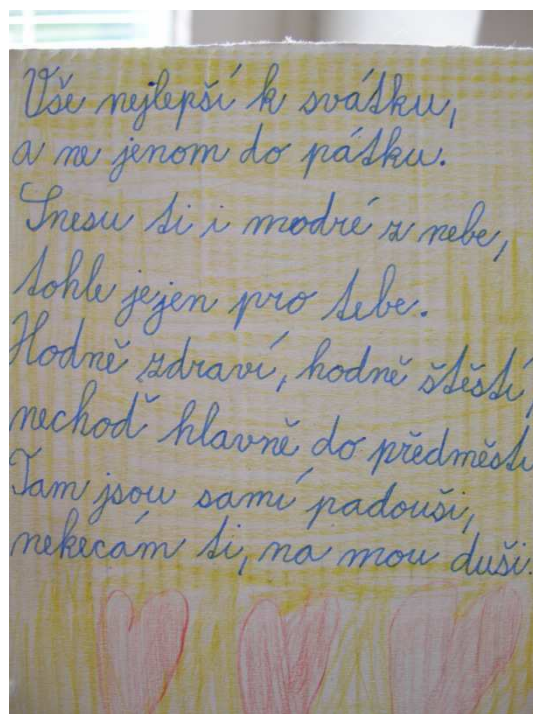 Vše nejlepší k svátku,
a ne jenom do pátku.
Snesu ti i modré z nebe,
tohle jejen pro tebe.
Hodně zdraví, hodně štěstí,
nechoď hlavně do předměstí
Tam jsou samí padouši,
nekecám ti, na mou duši.